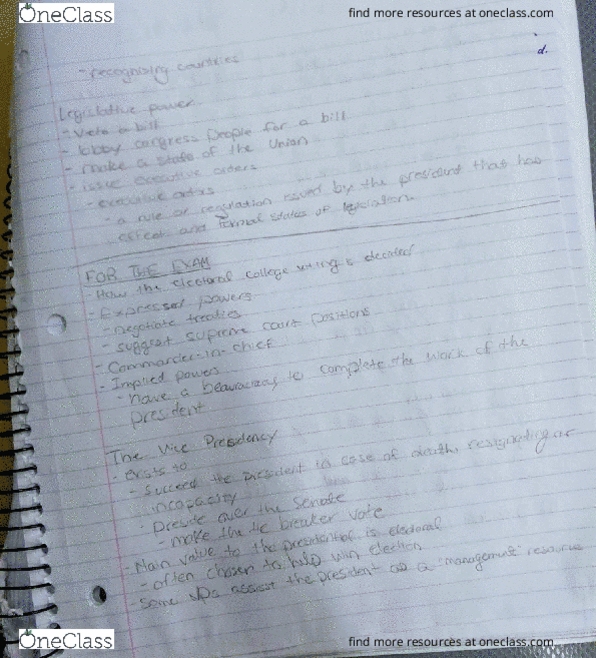 OneClass
find more resources at oneclass.com
d.
- recognising countries
Legislative power
- Veto a bill
- lobby congress people for a bill
- make a State of the Union
- issue executive orders
- executive orders
- a rule or regulation issued by the president that has
effect and formal states of legislation.
FOR THE EXAM
- How the electoral college voting is decided
- Expressed powers
- negotiate treaties
- suggest supreme court positions
- Commander-in-chief
- Implied powers
- have a beauracracy to complete the work of the
president
The Vice Presidency
- exists to
- succeed the president in case of death, resignation or
incapacity
- preside over the Senate
- make the tie breaker vote
- Main value to the president is electoral
- often chosen to help win election
- some VPs assist the president as a "management" resource
OneClass
find more resources at oneclass.com